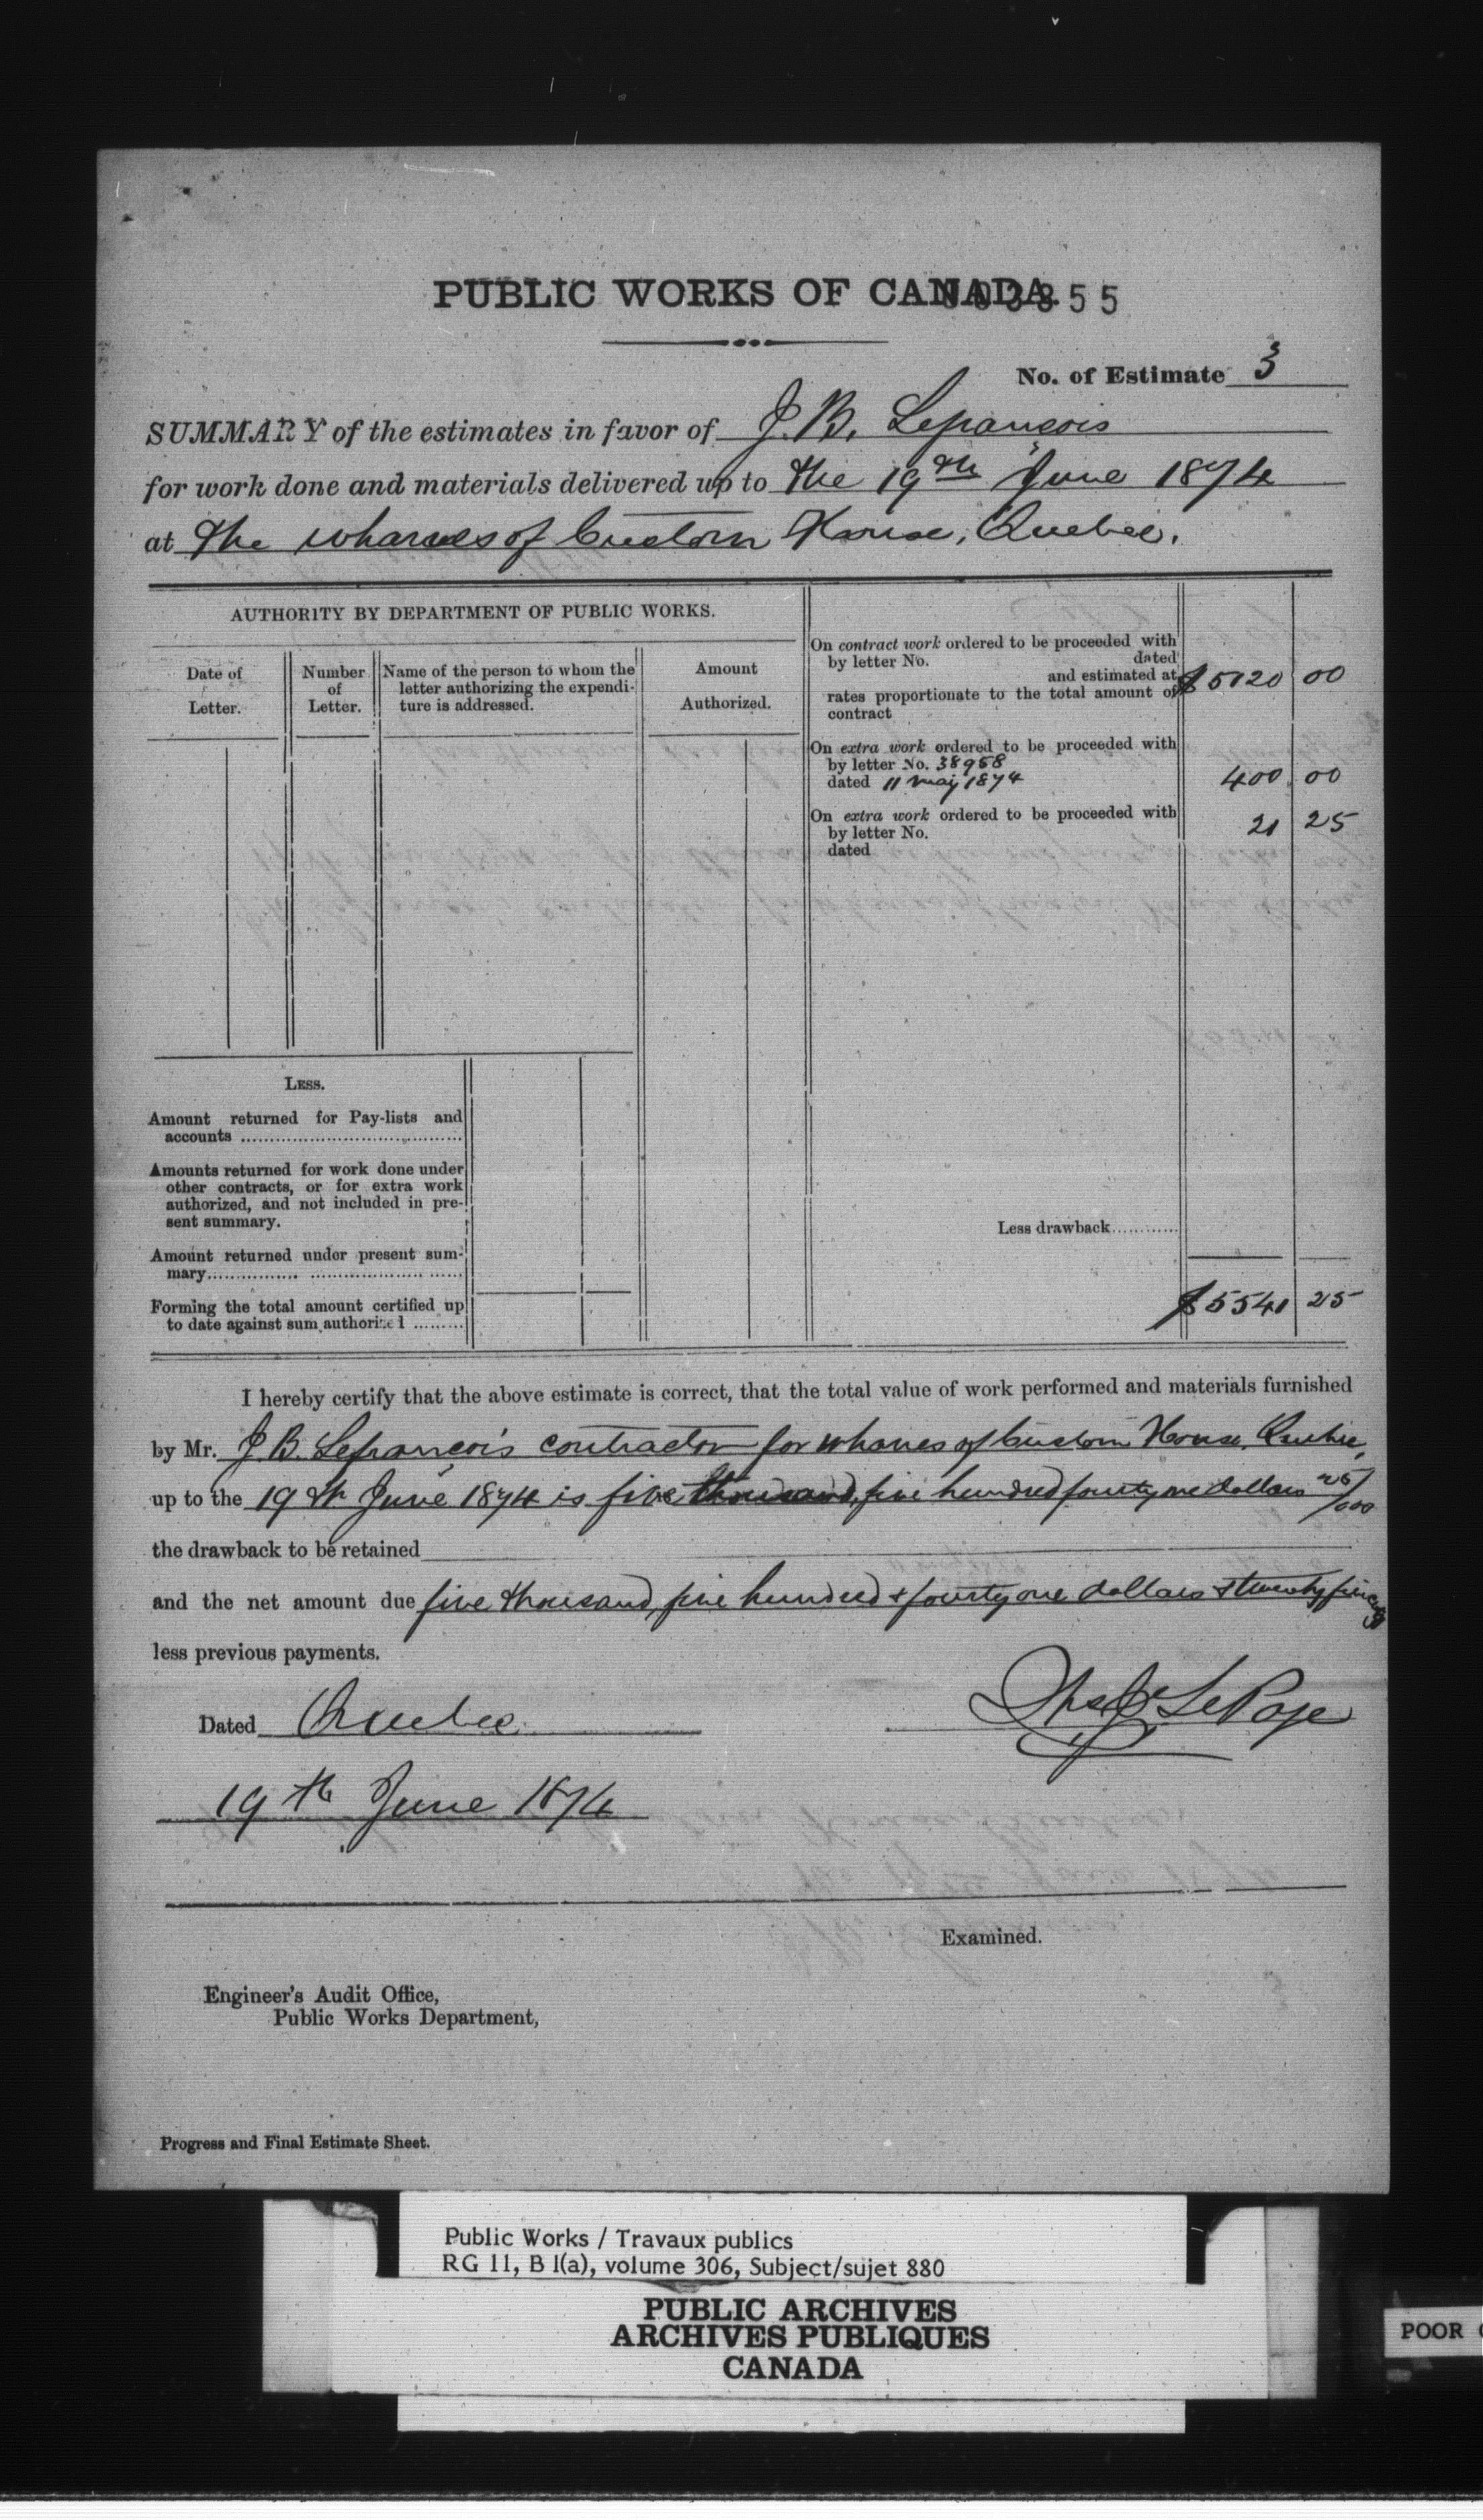 PUBLIC WORKS OF CANADA.
003855
No. of Estimate 3
SUMMARY of the estimates in favor of J. B. Lefrançois
for work done and materials delivered up to the 19th June 1874
at the wharves of Custom House, Quebec.
AUTHORITY BY DEPARTMENT OF PUBLIC WORKS.
Date of
Letter.
Number
of
Letter.
Name of the person to whom the
letter authorizing the expendi-
ture is addressed.
Amount
Authorized.
On contract work ordered to be proceeded with
by letter No. dated
and estimated at
rates proportionate to the total amount of
contract
$ 5120 00
On extra work ordered to be proceeded with
by letter No. 38958
dated 11 may 1874
400 00
On extra work ordered to be proceeded with
by letter No.
dated
21 25
LESS.
Amount returned for Pay-lists and
accounts
Amounts returned for work done under
other contracts, or for extra work
authorized, and not included in pre-
sent summary.
Amount returned under present sum-
mary
Forming the total amount certified up
to date against sum authorized
Less drawback
$ 5541 25
I hereby certify that the above estimate is correct, that the total value of work performed and materials furnished
by Mr. J. B. Lefrançois contractor for wharves of Custom House, Quebec,
up to the 19th June 1874 is five thousand, five hundred fourty one dollars 25/100
the drawback to be retained
and the net amount due five thousand, five hundred & fourty one dollars & twenty five cts
less previous payments.
Dated Quebec
19th June 1874
LePage
Examined.
Engineer's Audit Office,
Public Works Department,
Progress and Final Estimate Sheet.
Public Works / Travaux publics
RG 11, B 1(a), volume 306, Subject/sujet 880
PUBLIC ARCHIVES
ARCHIVES PUBLIQUES
CANADA
POOR